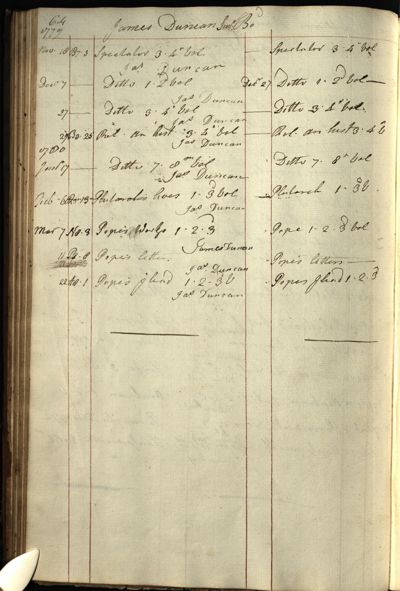 64
1779 James Duncan
Nov 18 B 3 Spectator 3. 4th vol. Spectator 3. 4th vol
Jas Duncan
Dec 7 Ditto 1. 2d vol Decr 27 Ditto 1. 2d vol
Jas Duncan
27 Ditto 3. 4th vol. Ditto 3. 4th vol.
Jas Duncan
25 Rol. an hist. 3. 4th vol Rol. an hist 3. 4th v
Jas Duncan
1780
17 Ditto 7. 8th vol Ditto 7. 8th vol
Jas Duncan
Feb 6 13 Plutarchs lives 1. 3d vol Plutarch 1. 3d v.
Jas Duncan
Mar 7 No. 3 Popes Works 1. 2. 3 Pope 1. 2. 3d vol
James Duncan
11 8 Popes letters Popes letters
Jas Duncan
22 1 Popes Iliad 1. 2. 3d v Popes Iliad 1. 2. 3d
Jas Duncan